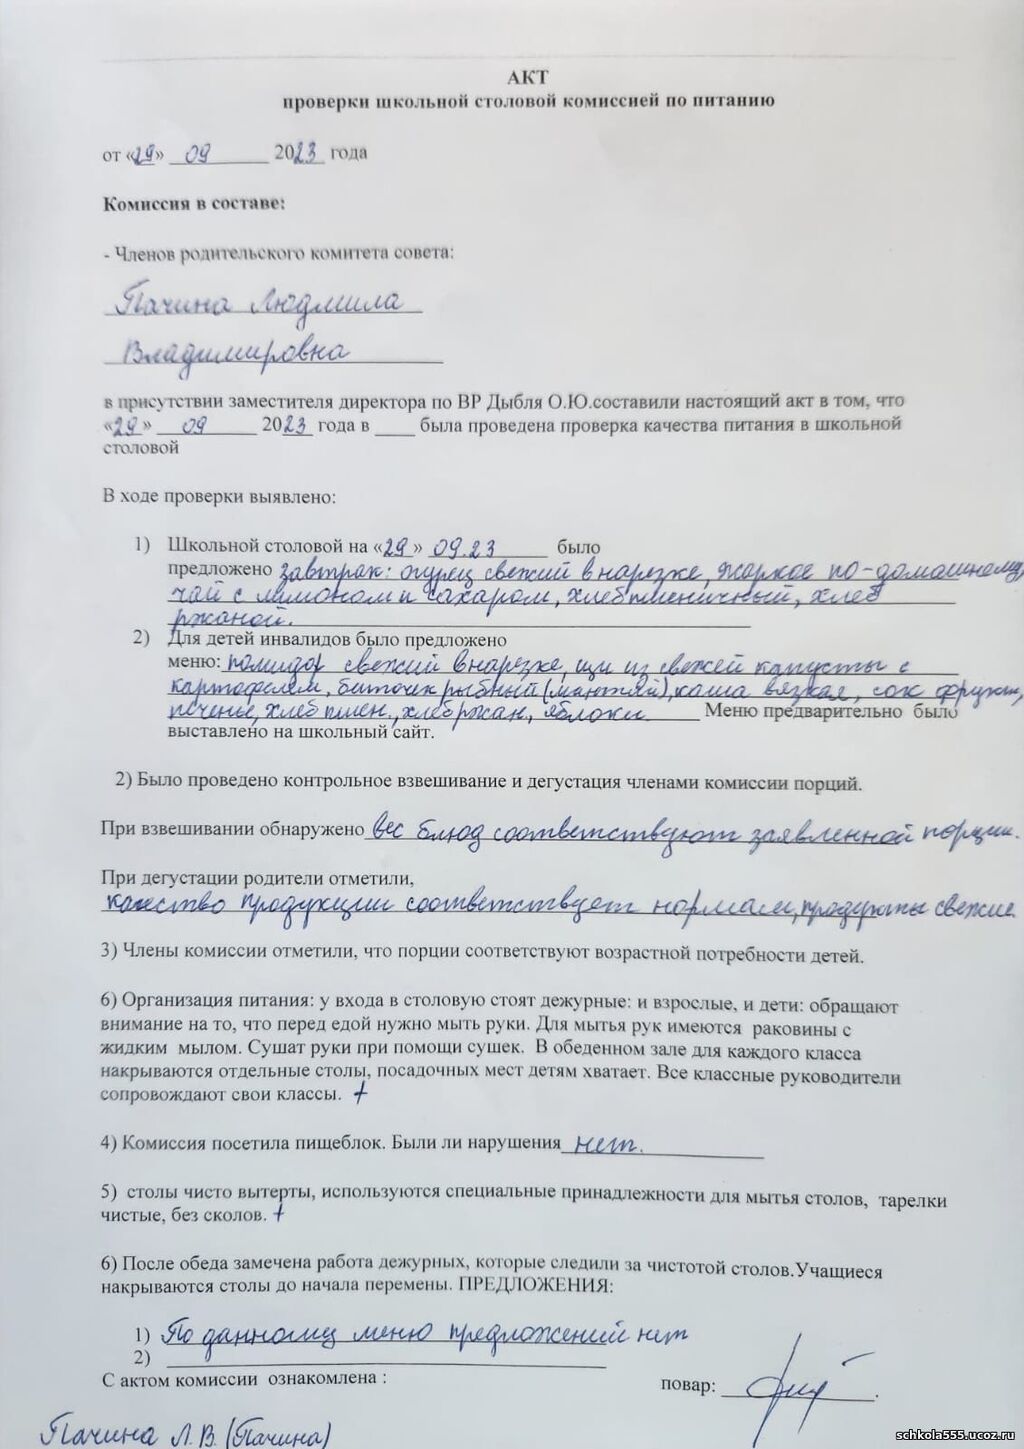 АКТ
проверки школьной столовой комиссией по питанию
от «29» 09 2023 года
Комиссия в составе:
- Членов родительского комитета совета:
Пачина Людмила
Владимировна
в присутствии заместителя директора по ВР Дыбля О.Ю.составили настоящий акт в том, что
«29» 09 2023 года в ____ была проведена проверка качества питания в школьной
столовой
В ходе проверки выявлено:
1) Школьной столовой на «29» 09.23 было
предложено завтрак: огурец свежий в нарезке, жаркое по-домашнему,
чай с лимоном и сахаром, хлеб пшеничный, хлеб
ржаной.
2) Для детей инвалидов было предложено
меню: помидор свежий в нарезке, щи из свежей капусты с
картофелем, биточек рыбный (минтай), каша вязкая, сок фрукт,
печенье, хлеб пшен., хлеб ржан, яблоки Меню предварительно было
выставлено на школьный сайт.
2) Было проведено контрольное взвешивание и дегустация членами комиссии порций.
При взвешивании обнаружено вес блюд соответствуют заявленной порции.
При дегустации родители отметили,
качество продукции соответствует нормам, продукты свежие.
3) Члены комиссии отметили, что порции соответствуют возрастной потребности детей.
6) Организация питания: у входа в столовую стоят дежурные: и взрослые, и дети: обращают
внимание на то, что перед едой нужно мыть руки. Для мытья рук имеются раковины с
жидким мылом. Сушат руки при помощи сушек. В обеденном зале для каждого класса
накрываются отдельные столы, посадочных мест детям хватает. Все классные руководители
сопровождают свои классы. +
4) Комиссия посетила пищеблок. Были ли нарушения нет.
5) столы чисто вытерты, используются специальные принадлежности для мытья столов, тарелки
чистые, без сколов. +
6) После обеда замечена работа дежурных, которые следили за чистотой столов.Учащиеся
накрываются столы до начала перемены. ПРЕДЛОЖЕНИЯ:
1) По данному меню предложений нет
2)
С актом комиссии ознакомлена :
повар:
Пачина Л.В. (Пачина)
schkola555.ucoz.ru